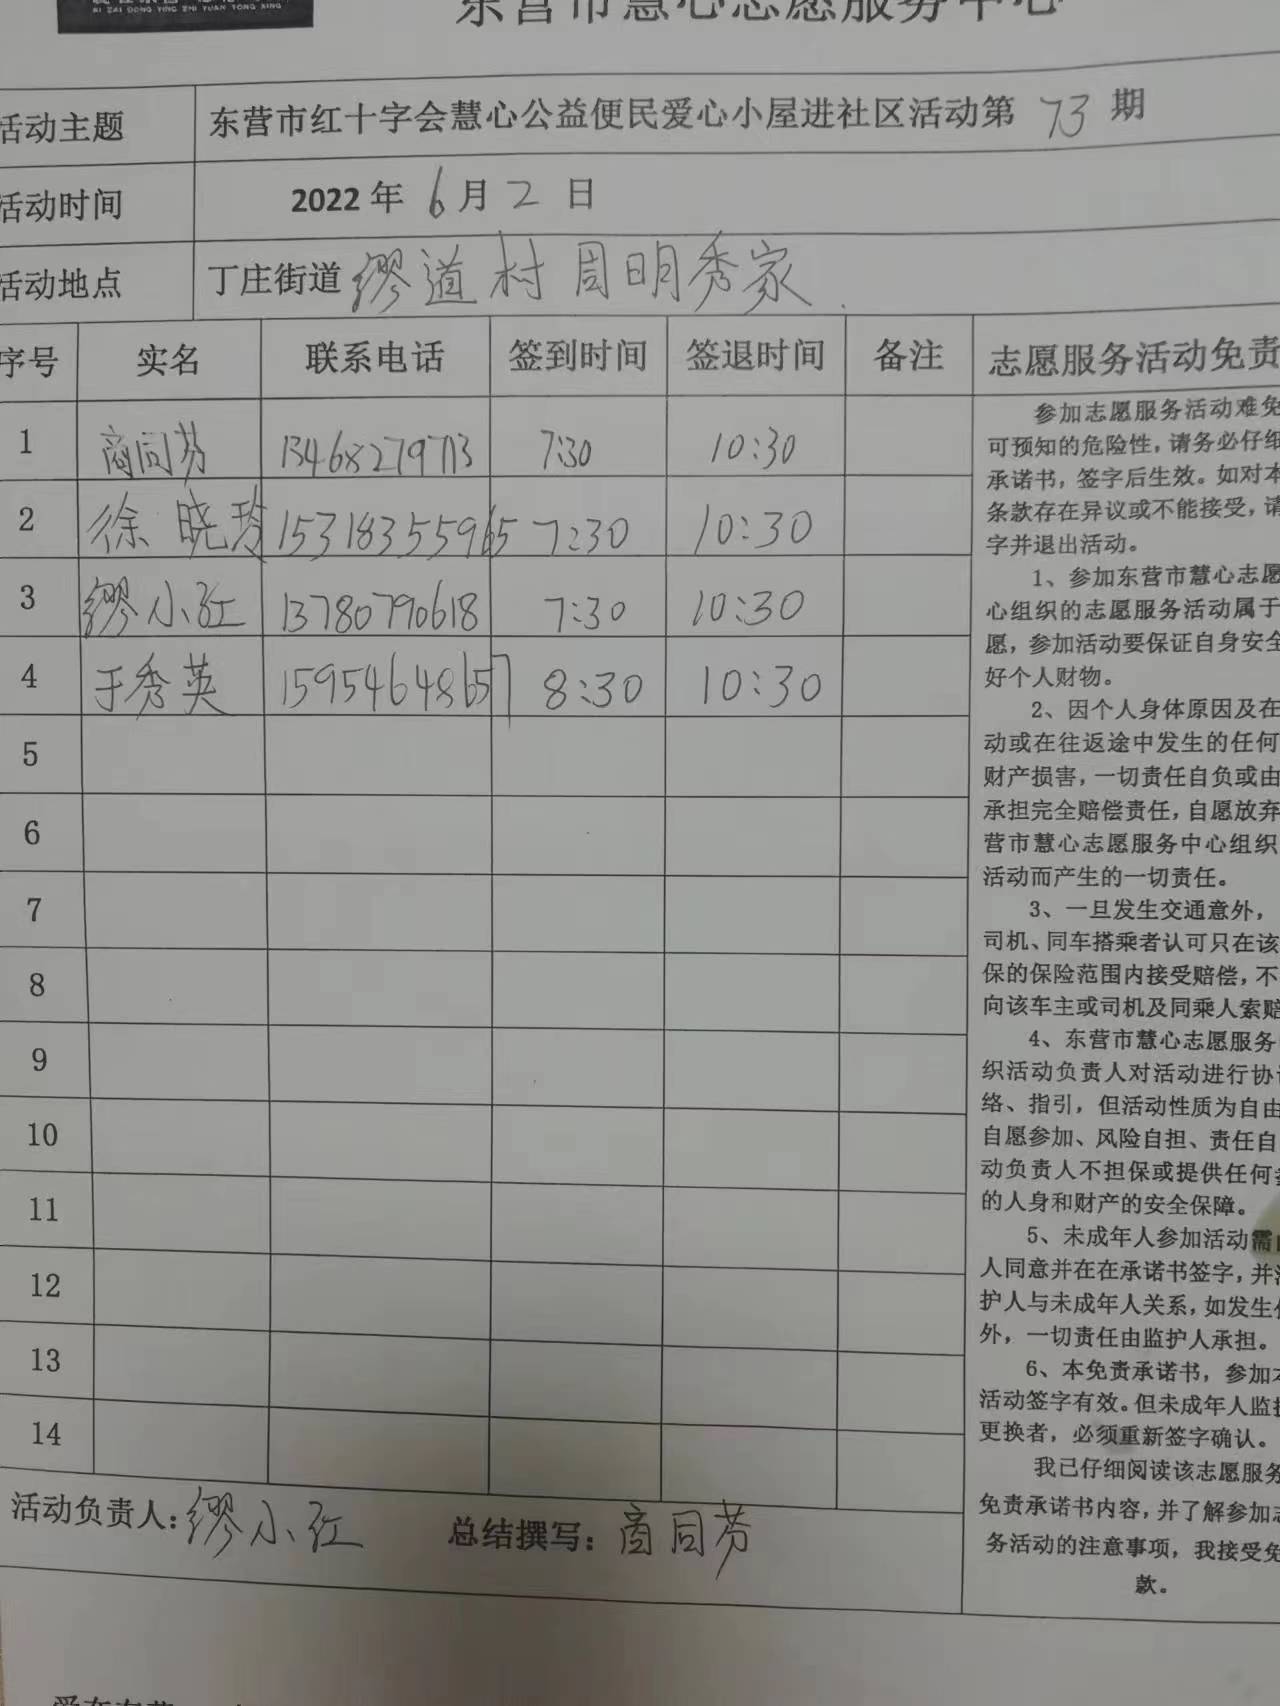 东营市慧心志愿服务中心
活动主题 东营市红十字会慧心公益便民爱心小屋进社区活动第 73 期
活动时间 2022 年 6 月 2 日
活动地点 丁庄街道 缪道村周明秀家
序号 实名 联系电话 签到时间 签退时间 备注 志愿服务活动免责
1 商同芬 13468279713 7:30 10:30
2 徐晓玲 15318355965 7:30 10:30
3 缪小红 13780790618 7:30 10:30
4 于秀英 15954648657 8:30 10:30
5
6
7
8
9
10
11
12
13
14
参加志愿服务活动难免
可预知的危险性，请务必仔细
承诺书，签字后生效。如对本
条款存在异议或不能接受，请
字并退出活动。
1、参加东营市慧心志愿
心组织的志愿服务活动属于
愿，参加活动要保证自身安全
好个人财物。
2、因个人身体原因及在
动或在往返途中发生的任何
财产损害，一切责任自负或由
承担完全赔偿责任，自愿放弃
营市慧心志愿服务中心组织
活动而产生的一切责任。
3、一旦发生交通意外，
司机、同车搭乘者认可只在该
保的保险范围内接受赔偿，不
向该车主或司机及同乘人索赔
4、东营市慧心志愿服务
织活动负责人对活动进行协
络、指引，但活动性质为自由
自愿参加、风险自担、责任自
动负责人不担保或提供任何
的人身和财产的安全保障。
5、未成年人参加活动需
人同意并在在承诺书签字，并
护人与未成年人关系，如发生
外，一切责任由监护人承担。
6、本免责承诺书，参加本
活动签字有效。但未成年人监
更换者，必须重新签字确认。
我已仔细阅读该志愿服务
免责承诺书内容，并了解参加志
务活动的注意事项，我接受免
款。
活动负责人：缪小红 总结撰写：商同芬